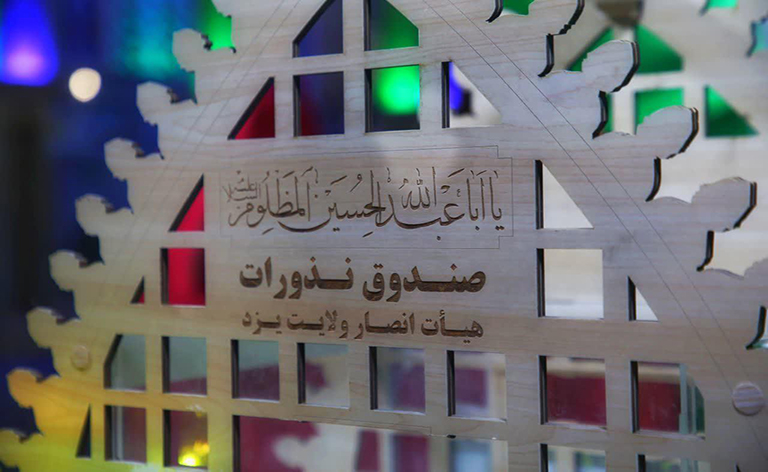 یا اباعبدالله الحسین المظلوم علیه السلام
صندوق نذورات
هیأت انصار ولایت یزد